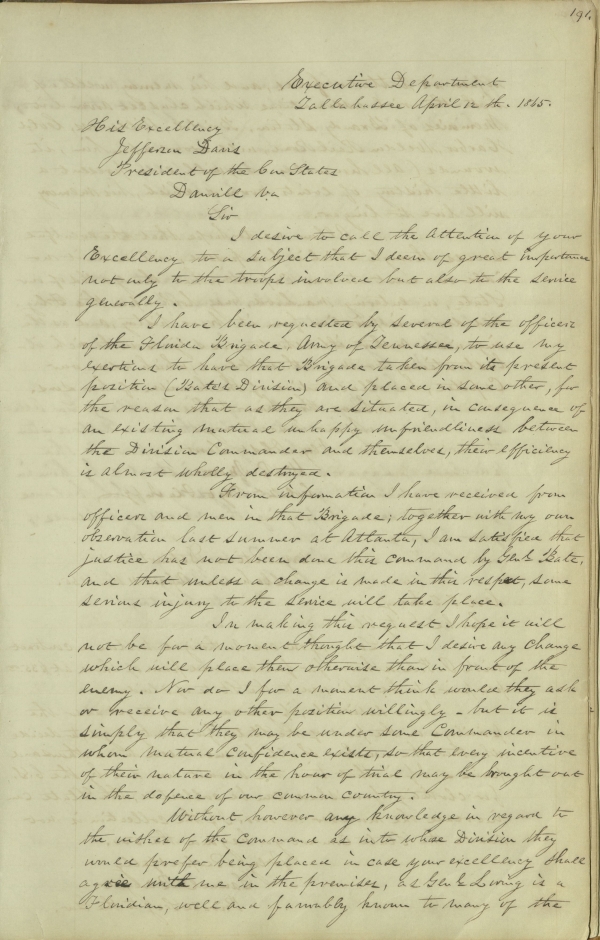 191.
Executive Department
Tallahassee April 12th. 1865.
His Excellency
Jefferson Davis
President of the Con States
Danvill Va
Sir
I desire to call the Attention of your
Excellency to a subject that I deem of great importance
not only to the troops involved but also to the service
generally.
I have been requested by several of the officers
of the Florida Brigade, Army of Tennessee, to use my
exertions to have that Brigade taken from its present
position (Bate's Division) and placed in some other, for
the reason that as they are situated, in consequence of
an existing mutual unhappy unfriendliness between
the Division Commander and themselves, their efficiency
is almost wholly destroyed.
From information I have received from
officers and men in that Brigade, together with my own
observation last summer at Atlanta, I am satisfied that
justice has not been done this command by Genl Bate,
and that unless a change is made in this respect, some
serious injury to the service will take place.
In making this request I hope it will
not be for a moment thought that I desire any change
which will place them otherwise than in front of the
enemy. Nor do I for a moment think would they ask
or receive any other position willingly - but it is
simply that they may be under some Commander in
whom mutual confidence exists, so that every incentive
of their nature in the hour of trial may be brought out
in the defence of our common country.
Without however any knowledge in regard to
the wishes of the Command as into whose Division they
would prefer being placed in case your excellency shall
agree with me in the premises, as Genl Loring is a
Floridian, well and favorably known to many of the